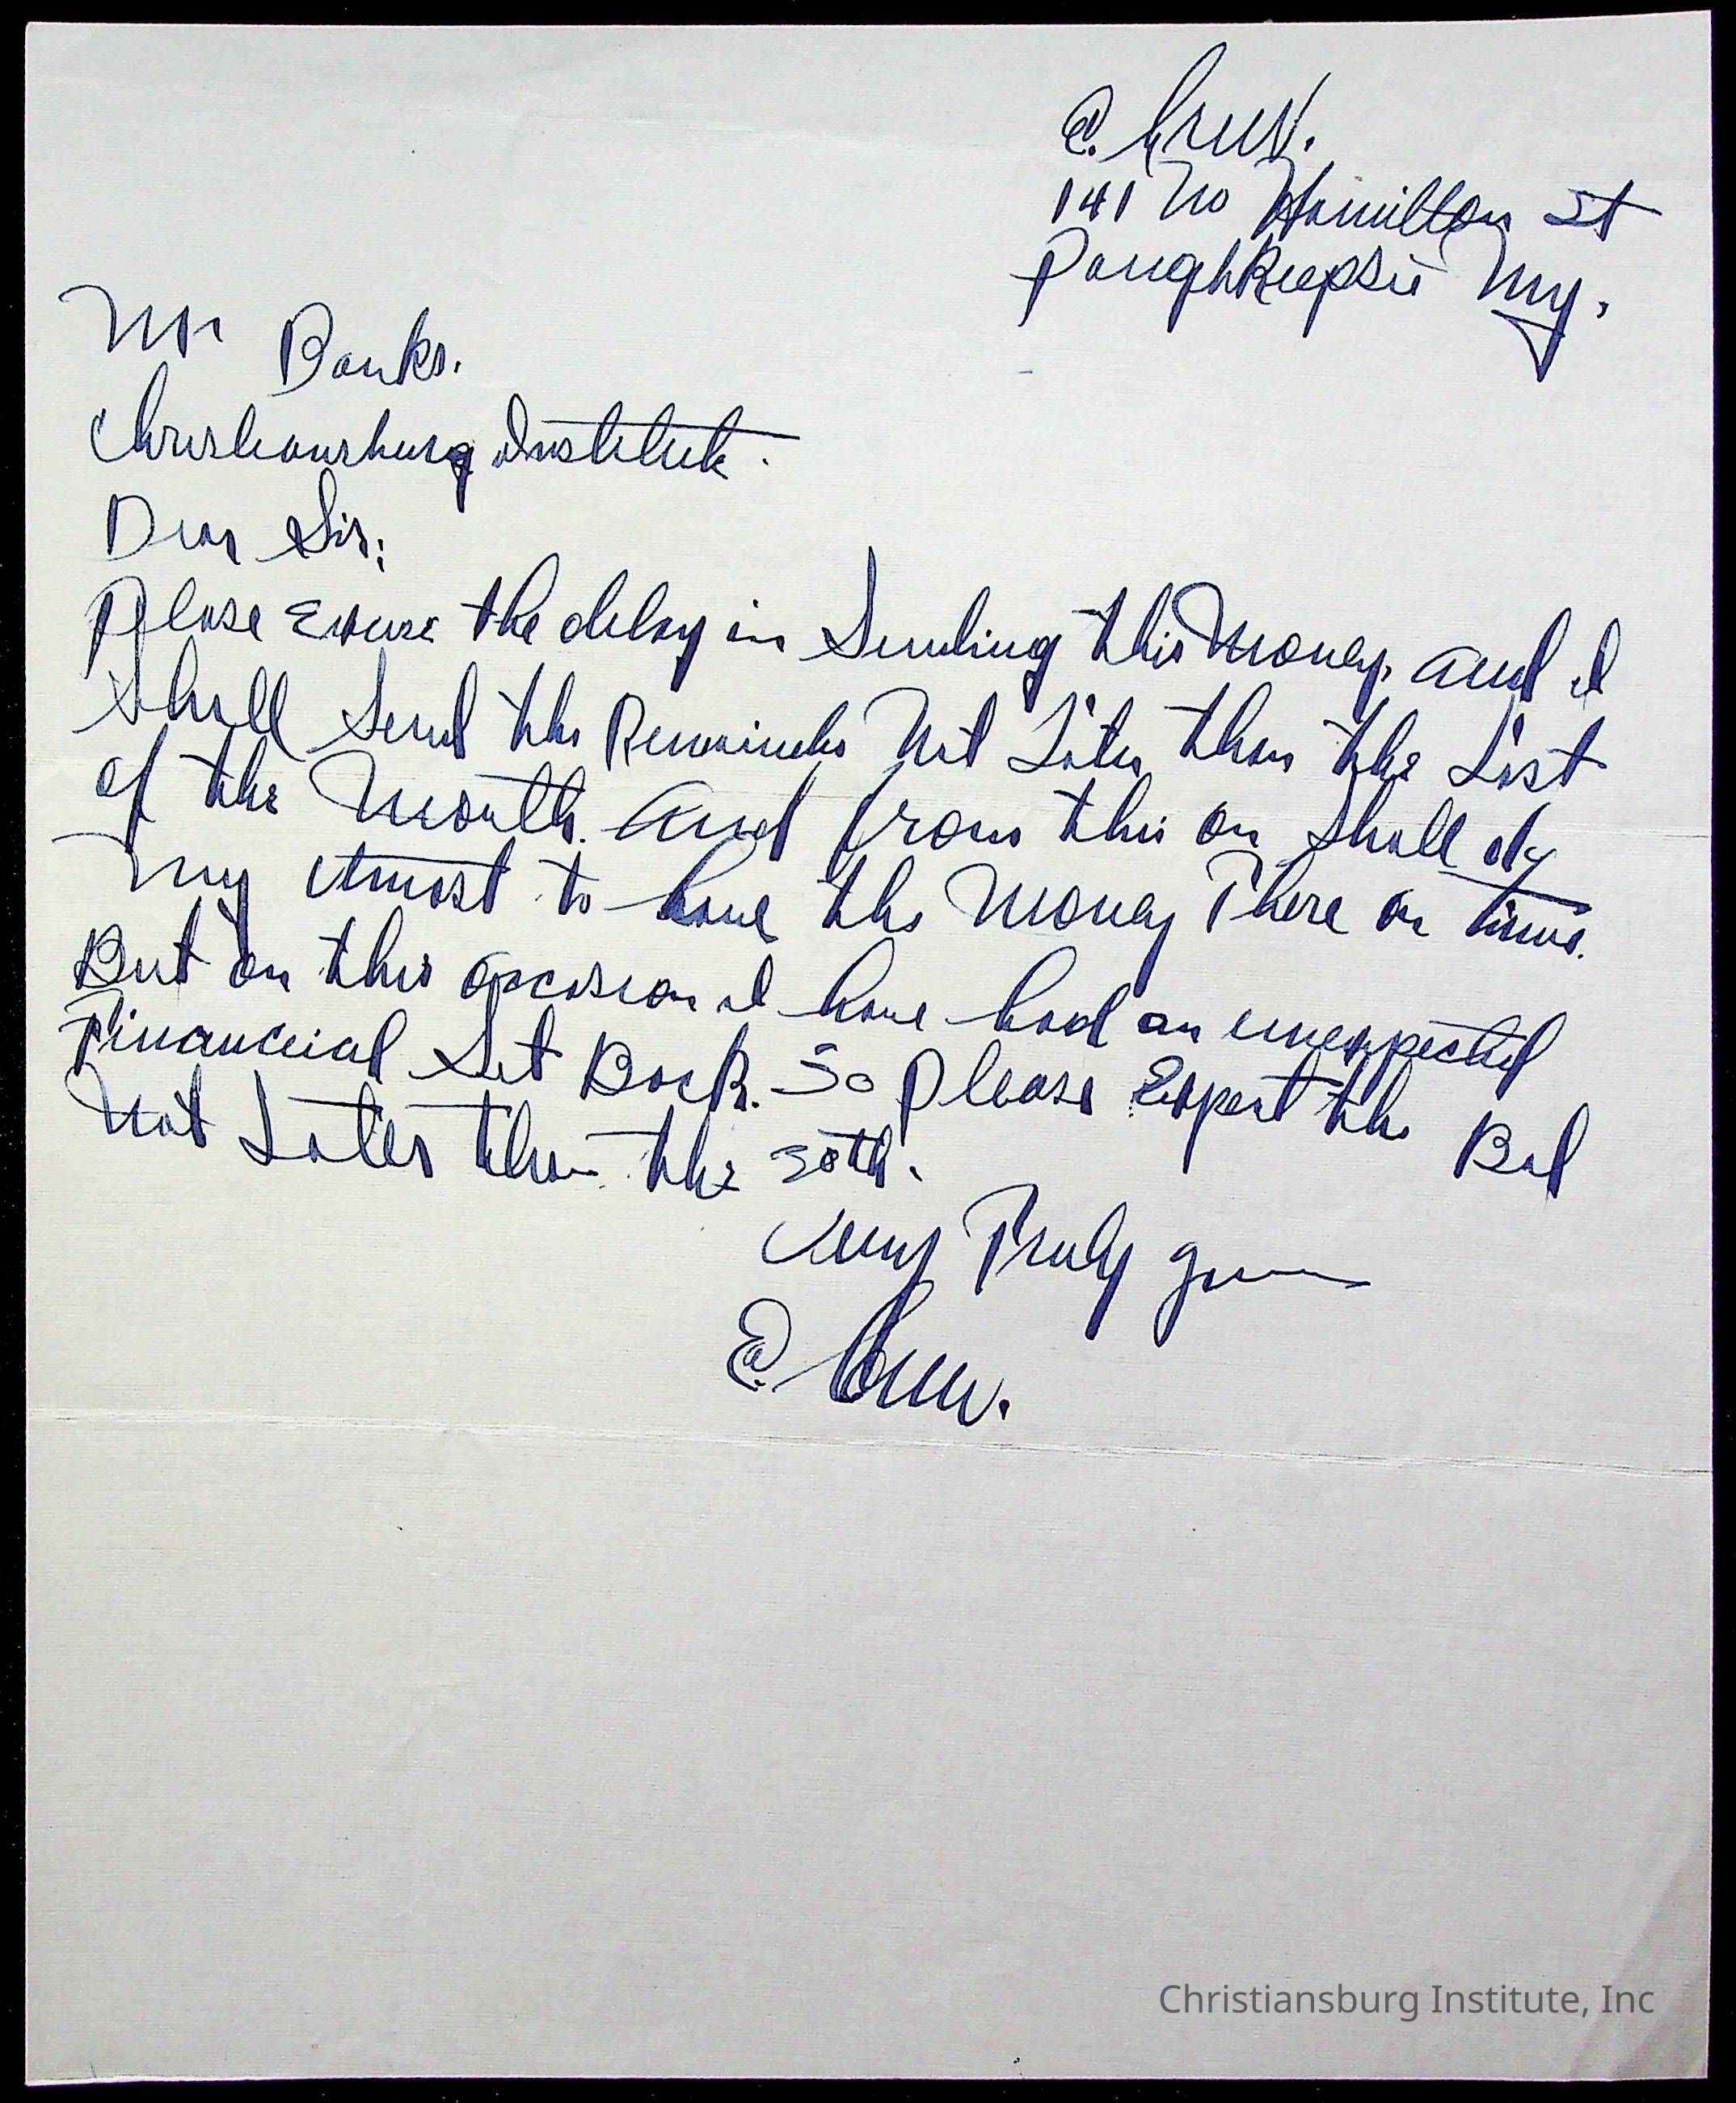 E. Crew.
141 No Hamilton St
Poughkeepsie Ny.
Mr Banks.
Christiansburg Institute.
Dear Sir:
Please Excuse the delay in Sending this Money, and I
Shall Send the Remainder Not Later than the Last
of the Month. And from this on Shall try
My utmost to have the Money There on time.
But on this occasion I have had an unexpected
Financial Set Back. So Please Expect the Bal
Not Later than the 30th.
Very Truly yours
E. Crew.
Christiansburg Institute, Inc